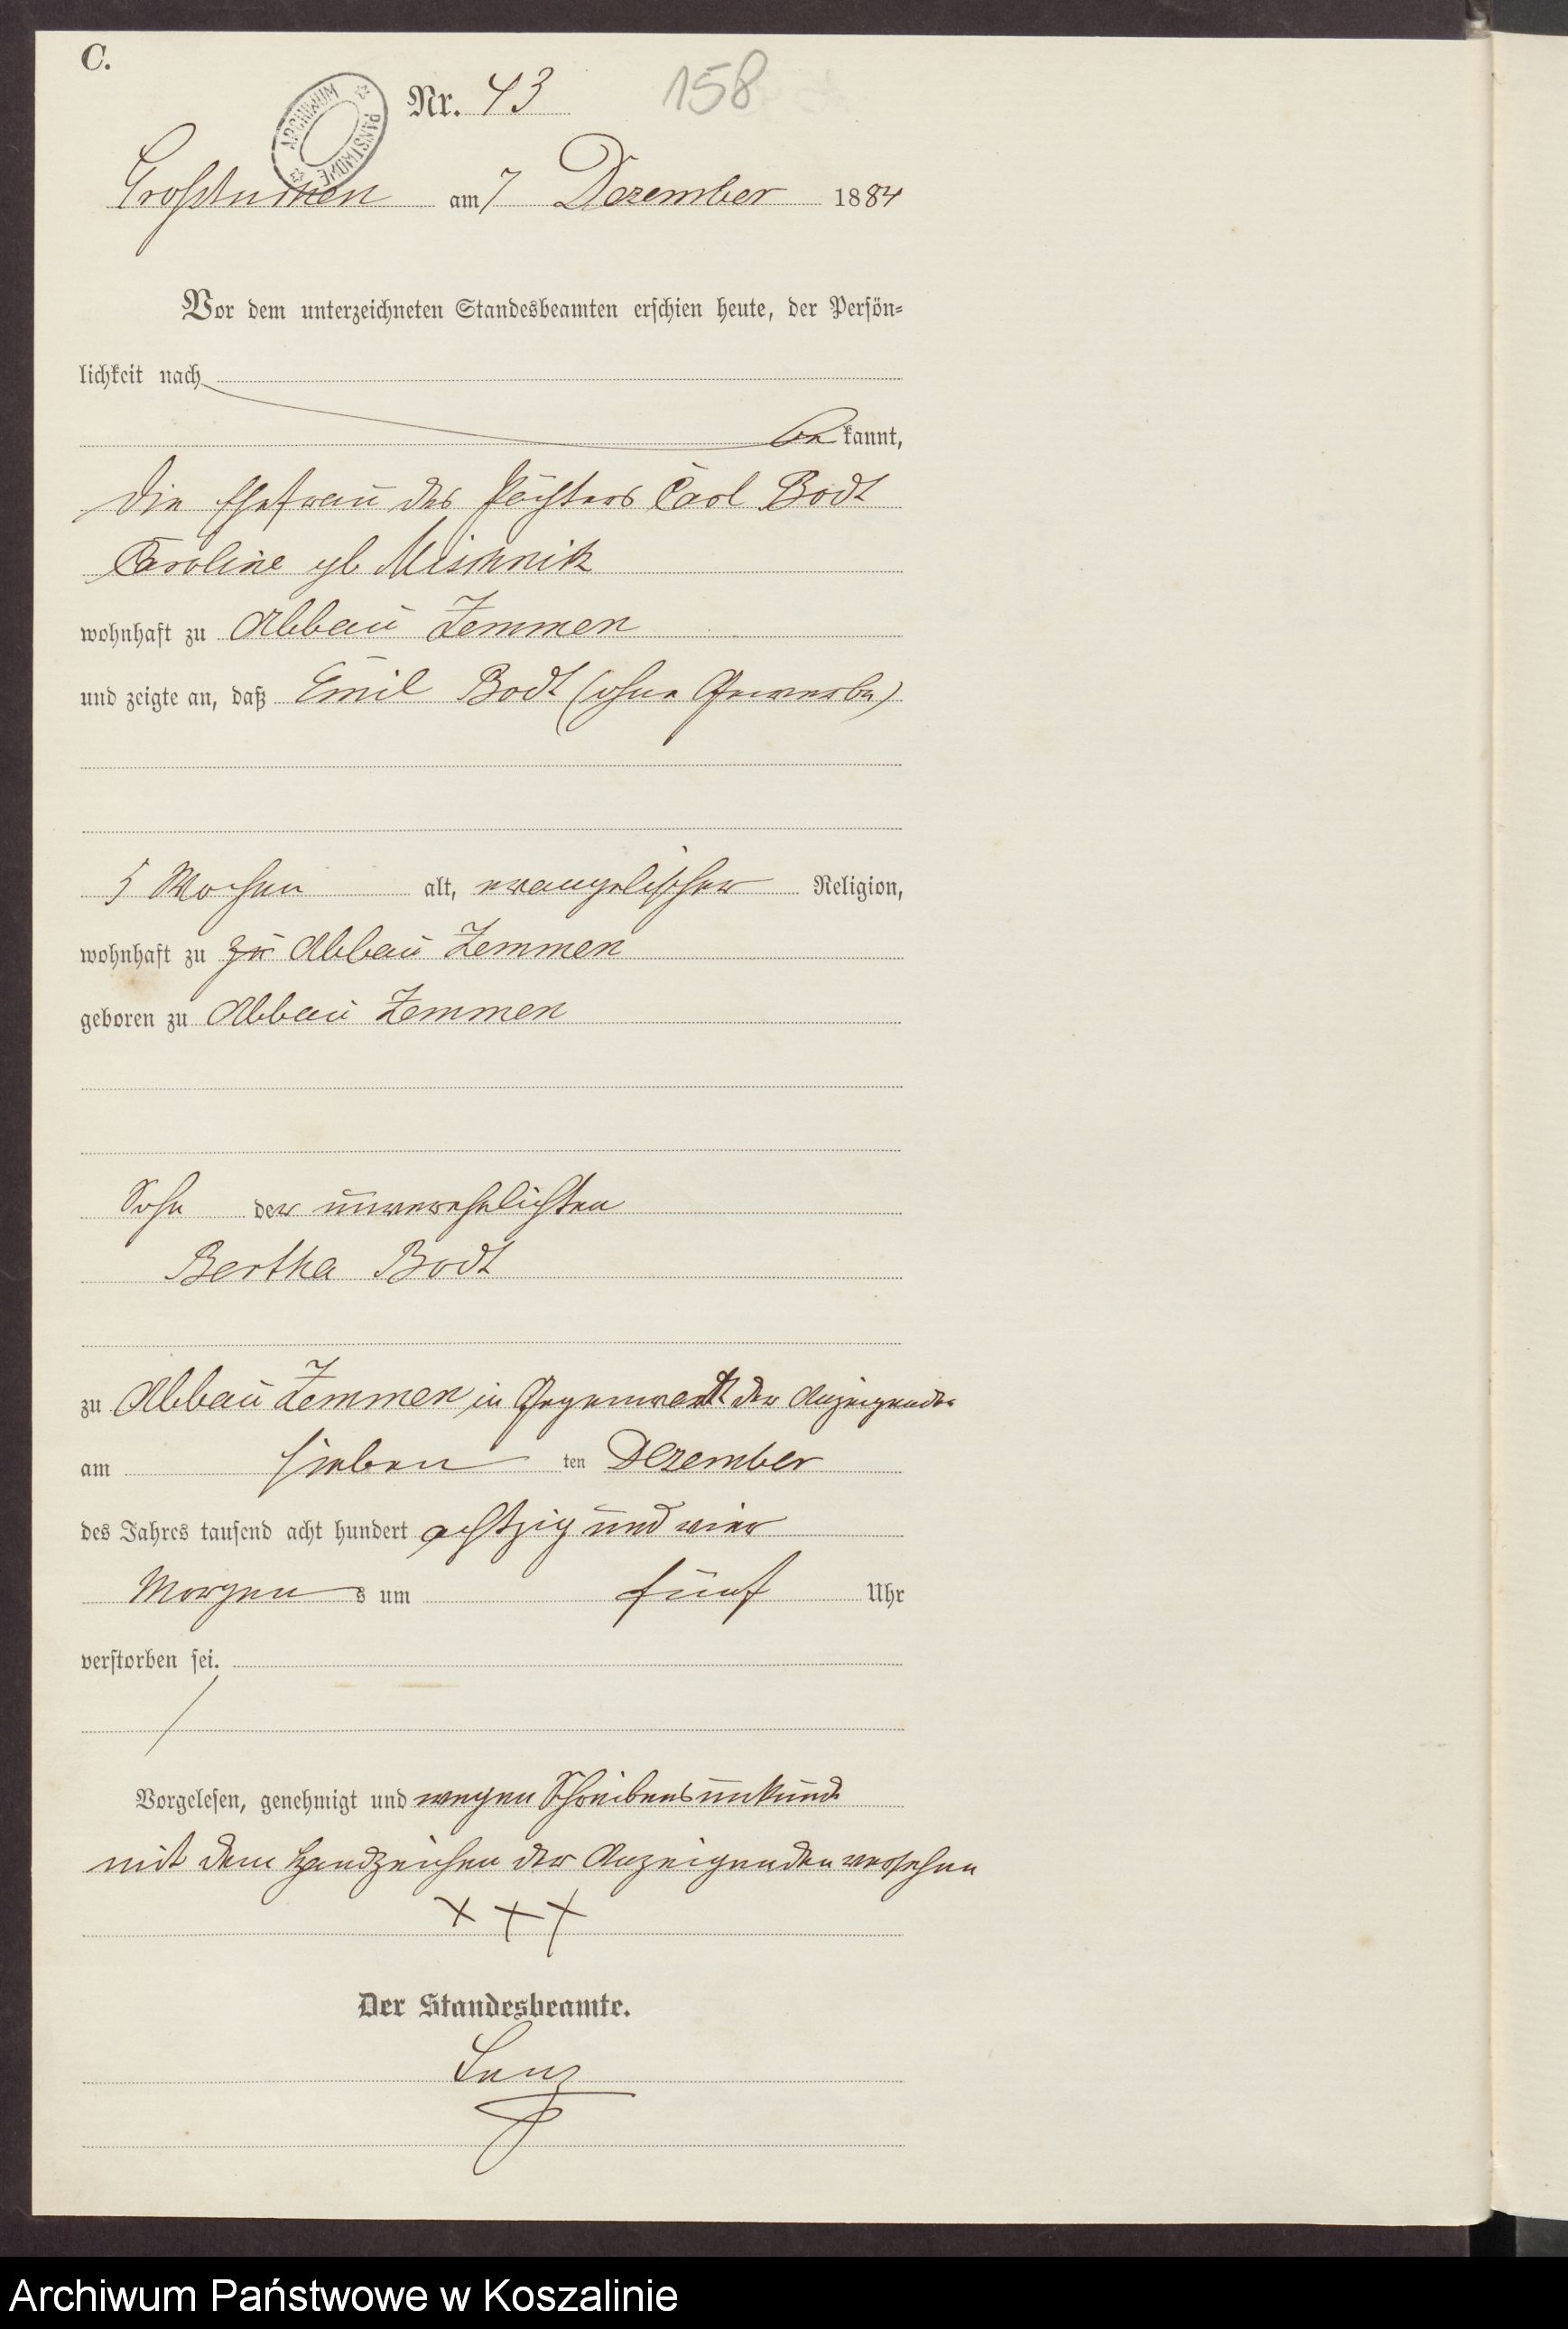 C.
Nr. 43 158
ARCHIWUM PAŃSTWOWE
Großtuchen am 7 Dezember 1884
Vor dem unterzeichneten Standesbeamten erschien heute, der Persön-
lichkeit nach
bekannt,
die Ehefrau des Pächters Carl Bodt
Caroline gb Mischnik
wohnhaft zu Abbau Zemmen
und zeigte an, daß Emil Bodt (ohne Gewerbe)
5 Wochen alt, evangelischer Religion,
wohnhaft zu zu Abbau Zemmen
geboren zu Abbau Zemmen
Sohn der unverehelichten
Bertha Bodt
zu Abbau Zemmen in Gegenwart der Anzeigenden
am sieben ten Dezember
des Jahres tausend acht hundert achtzig und vier
Morgen s um fünf Uhr
verstorben sei.
Vorgelesen, genehmigt und wegen Schreibensunkunde
mit dem Handzeichen der Anzeigenden versehen
+ + +
Der Standesbeamte.
Lenz
Archiwum Państwowe w Koszalinie